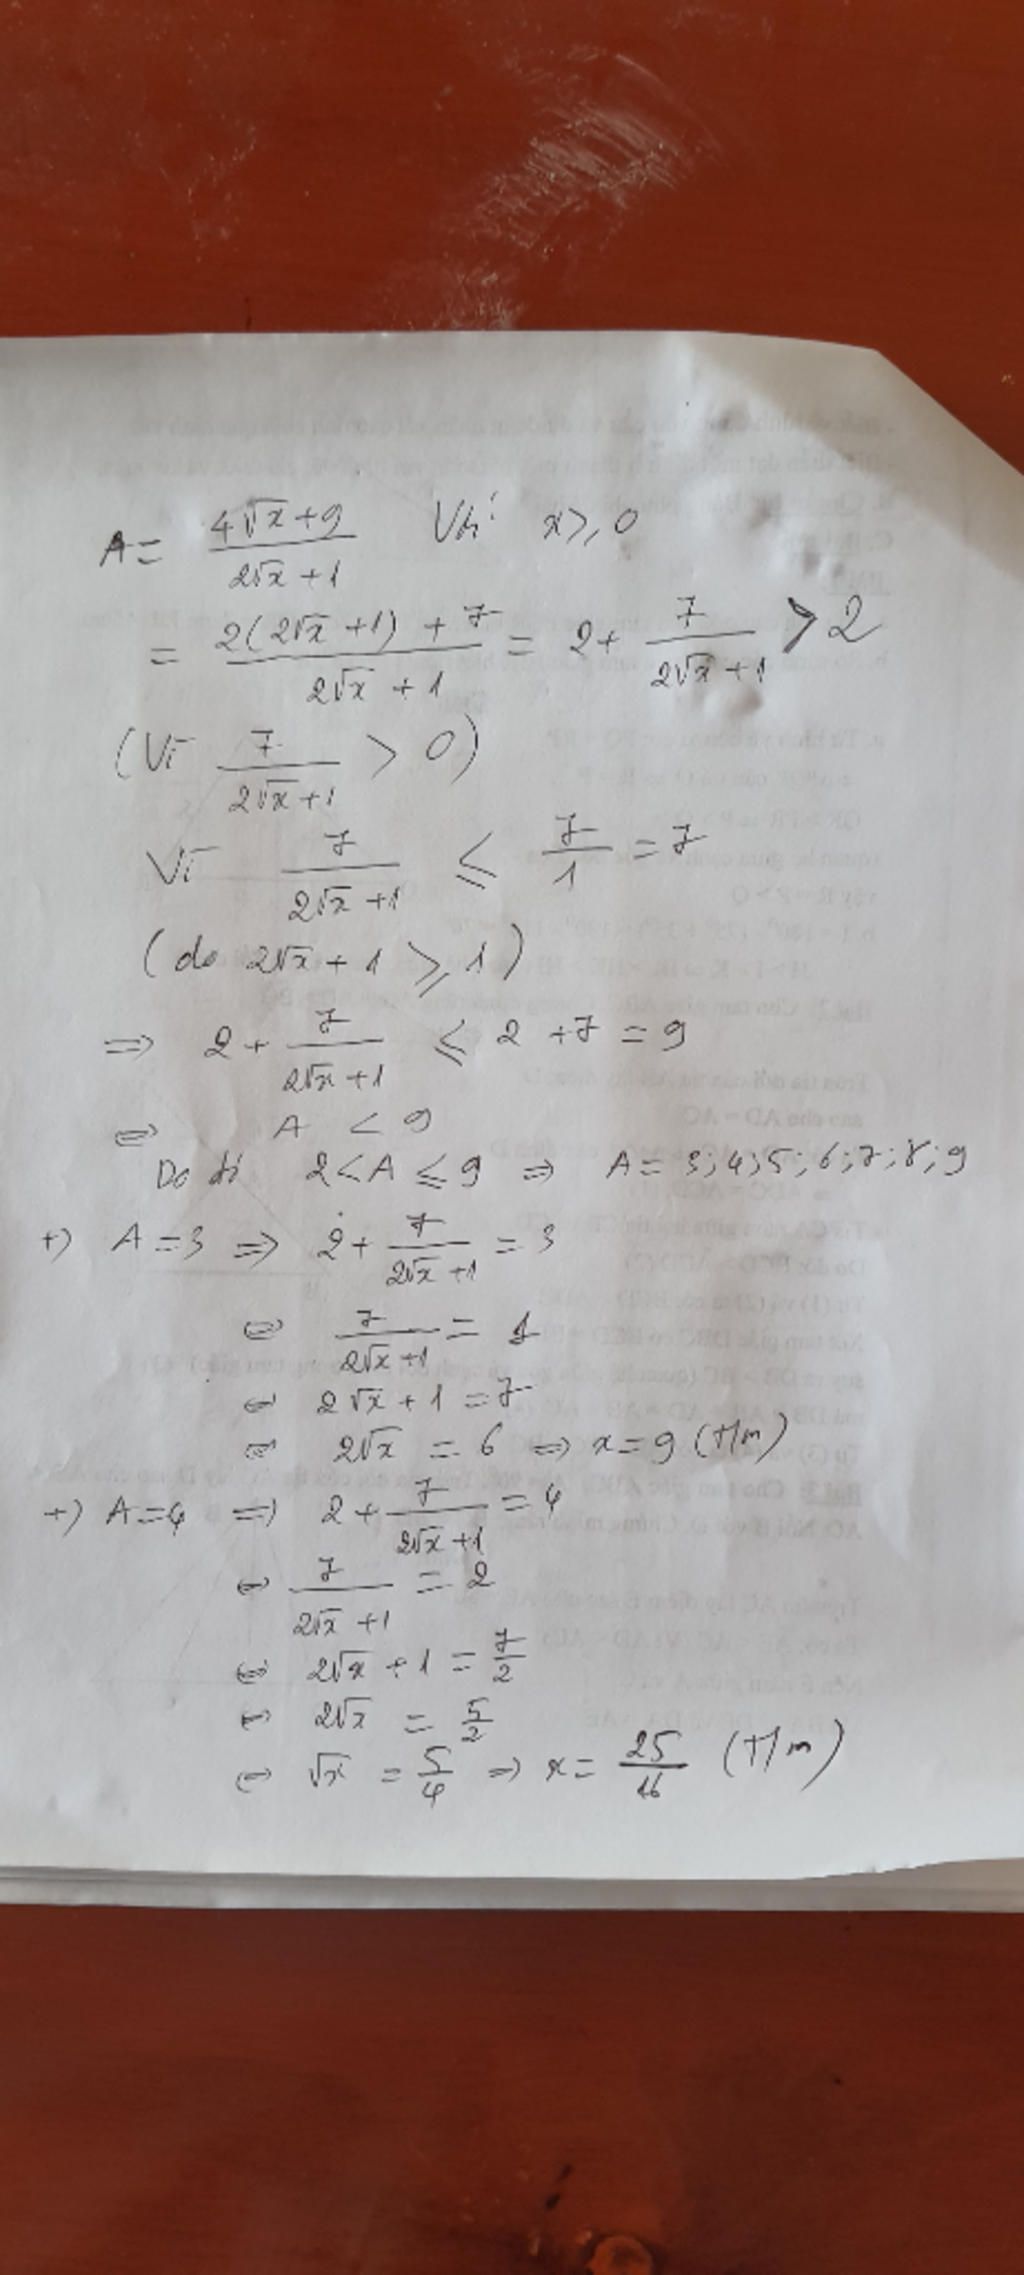 A = (4√x + 9)/(2√x + 1) Với x ≥ 0
= (2(2√x + 1) + 7)/(2√x + 1) = 2 + 7/(2√x + 1) > 2
(Vì 7/(2√x + 1) > 0)
Vì 7/(2√x + 1) ≤ 7/1 = 7
(do 2√x + 1 ≥ 1)
⇒ 2 + 7/(2√x + 1) ≤ 2 + 7 = 9
⇔ A < 9
Do đó 2 < A ≤ 9 ⇒ A = 3; 4; 5; 6; 7; 8; 9
+) A = 3 ⇒ 2 + 7/(2√x + 1) = 3
⇔ 7/(2√x + 1) = 1
⇔ 2√x + 1 = 7
⇔ 2√x = 6 ⇒ x = 9 (t/m)
+) A = 4 ⇒ 2 + 7/(2√x + 1) = 4
⇔ 7/(2√x + 1) = 2
⇔ 2√x + 1 = 7/2
⇔ 2√x = 5/2
⇔ √x = 5/4 ⇒ x = 25/16 (t/m)